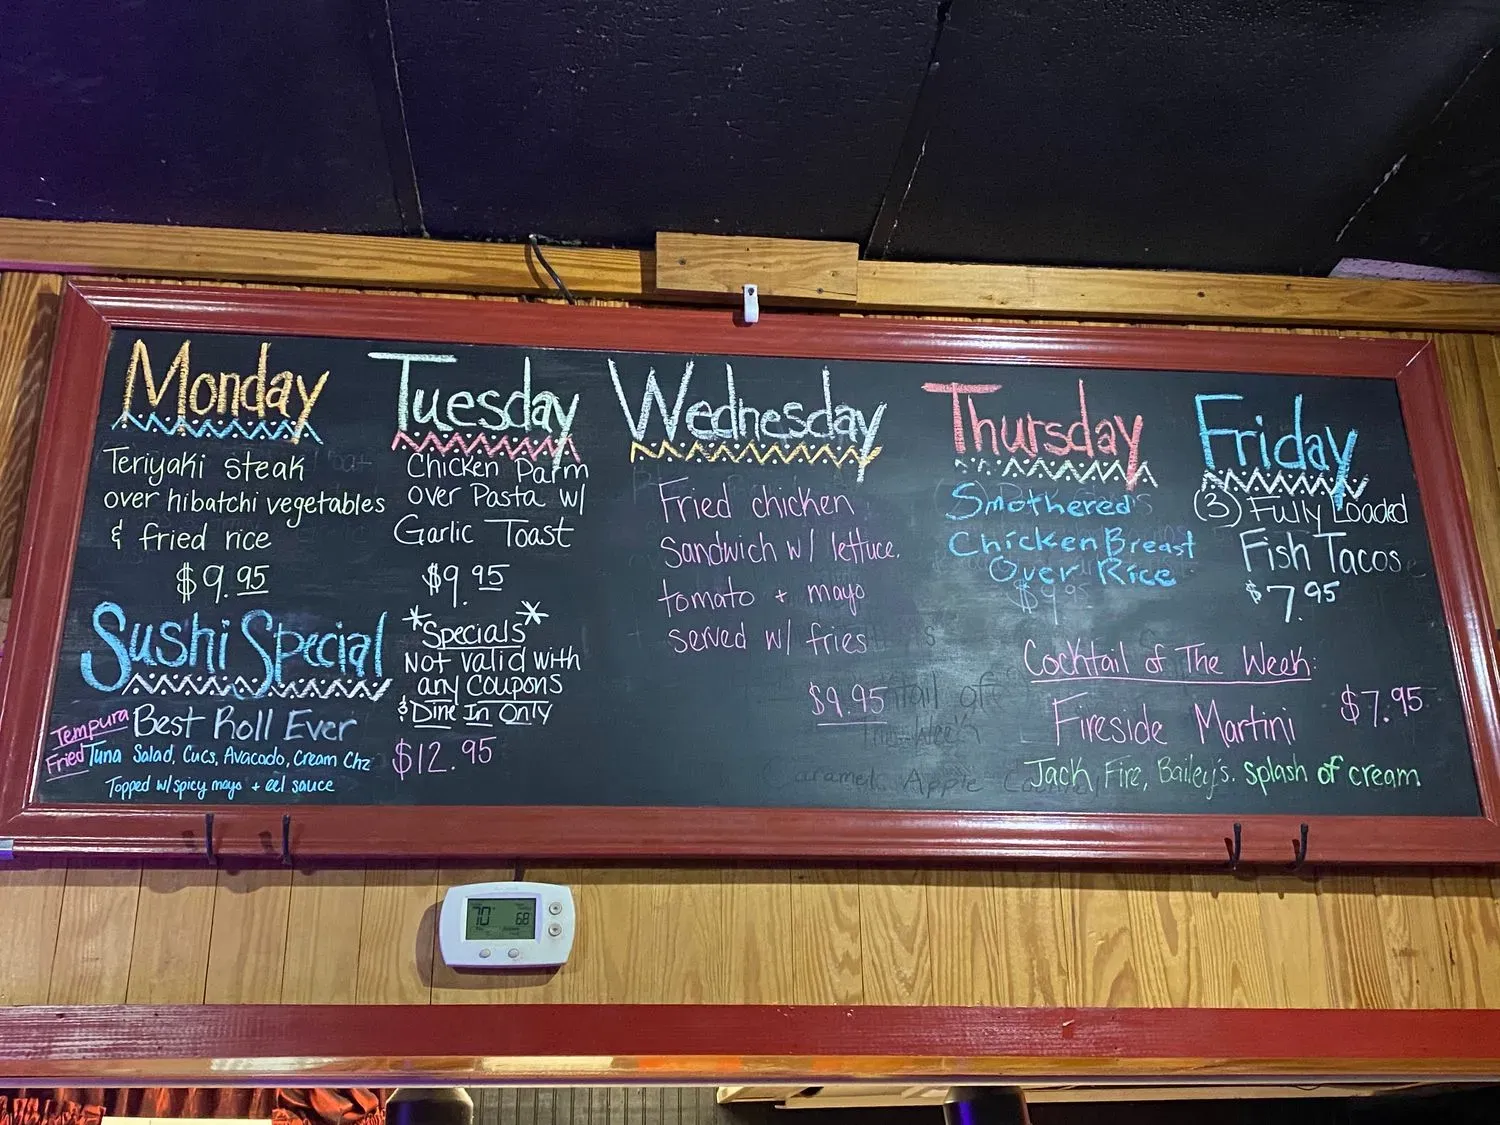 Monday
Teriyaki steak
over hibatchi vegetables
& fried rice
$9.95
Sushi Special
Tempura
Fried
Best Roll Ever
Tuna Salad, Cucs, Avacado, Cream Chz
Topped w/spicy mayo + eel sauce
$12.95
Tuesday
Chicken Parm
over Pasta w/
Garlic Toast
$9.95
*Specials*
Not valid with
any Coupons
& Dine In Only
Wednesday
Fried chicken
Sandwich w/ lettuce,
tomato + mayo
served w/ fries
$9.95
Thursday
Smothered
Chicken Breast
Over Rice
$9.95
Friday
(3) Fully Loaded
Fish Tacos
$7.95
Cocktail of The Week:
Fireside Martini
$7.95
Jack Fire, Bailey's. splash of cream
Caramel Apple
70
68